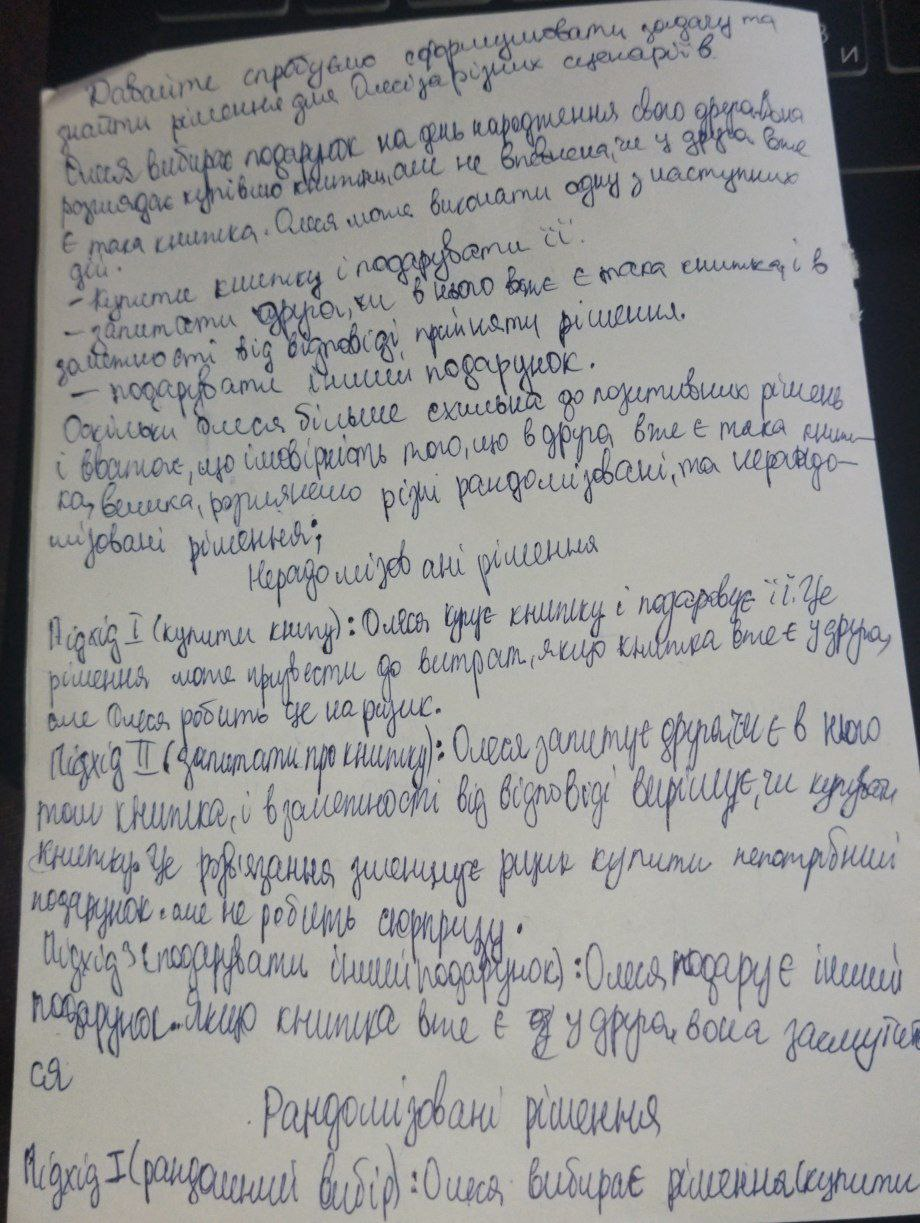 Давайте спробуємо сформулювати задачу та
знайти рішення для Олесі за різних сценаріїв.
Олеся вибирає подарунок на день народження свого друга. Вона
розглядає купівлю книжки, але не впевнена, чи у друга вже
є така книжка. Олеся може виконати одну з наступних
дій.
- Купити книжку і подарувати її.
- запитати друга, чи в нього вже є така книжка, і в
залежності від відповіді, прийняти рішення.
- подарувати інший подарунок.
Оскільки Олеся більше схильна до позитивних рішень
і вважає, що імовірність того, що в друга вже є така книж-
ка, велика, розглянемо різні рандомізовані, та нерандо-
мізовані рішення:
Нерадомізовані рішення
Підхід I (купити книгу): Олеся купує книжку і подаровує її. Це
рішення може призвести до витрат, якщо книжка вже є у друга,
але Олеся робить це на ризик.
Підхід II (запитати про книжку): Олеся запитує друга, чи є в нього
така книжка, і в залежності від відповіді вирішує, чи купувати
книжку. Це розв'язання зменшує ризик купити непотрібний
подарунок. але не робить сюрпризу.
Підхід 3 (подарувати інший подарунок): Олеся подарує інший
подарунок. Якщо книжка вже є у друга, вона засмутить
ся
Рандомізовані рішення
Підхід I (рандомний вибір): Олеся вибирає рішення (купити